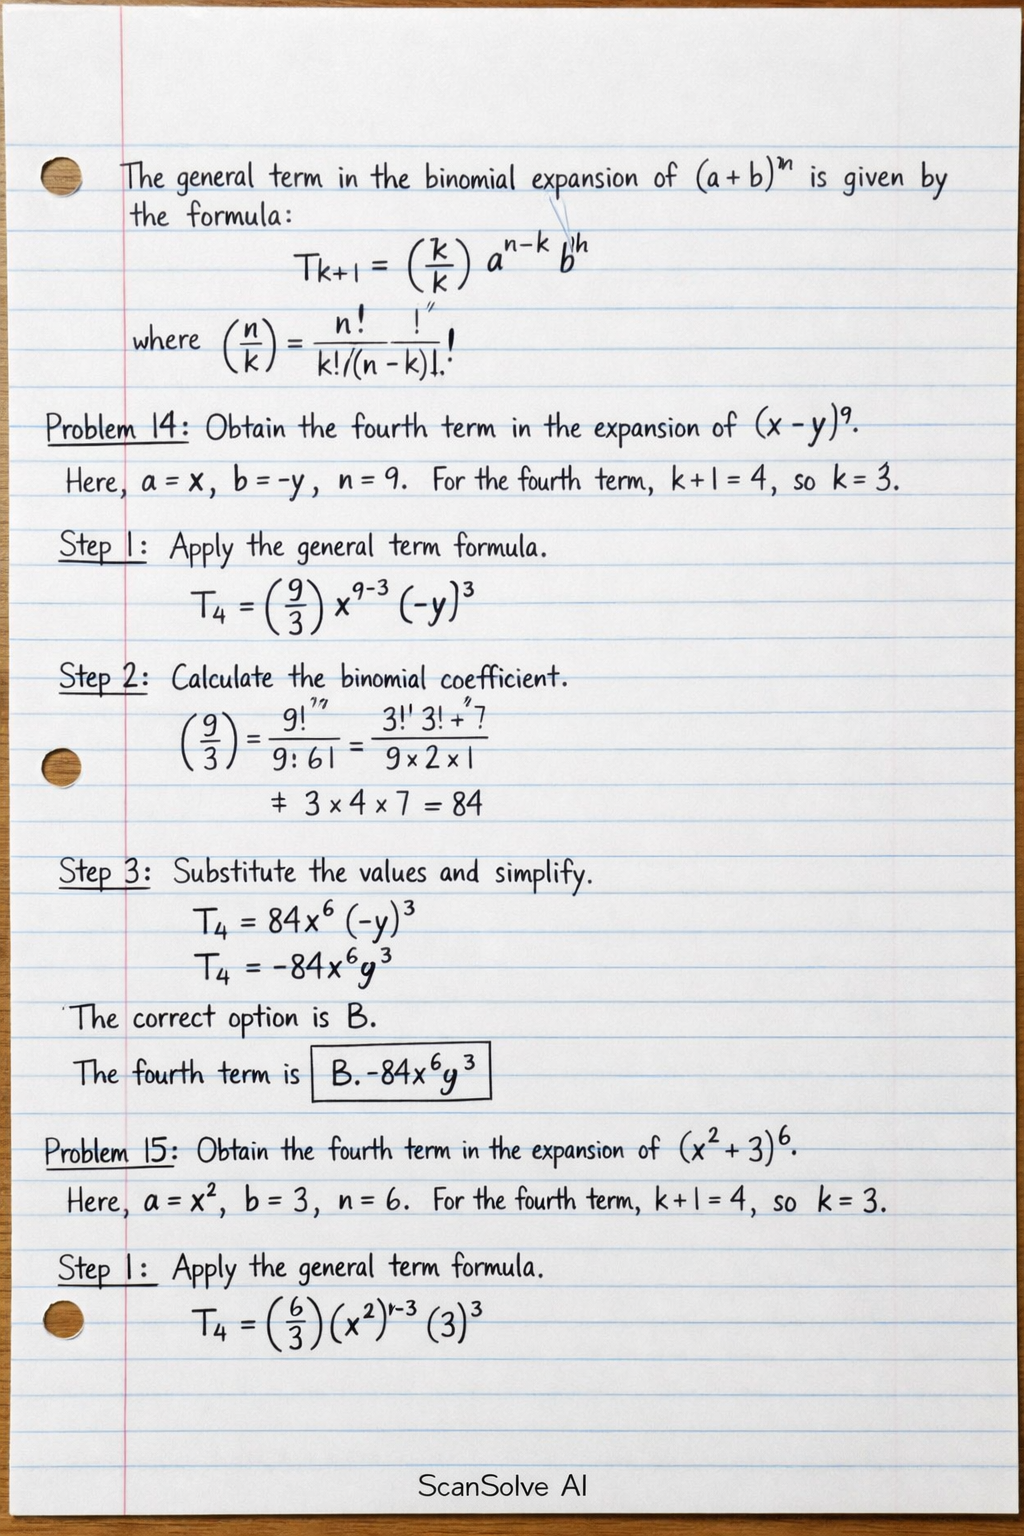 The general term in the binomial expansion of (a + b)^n is given by
the formula:
Tk+1 = (k/k) a^n-k b^h
where (n/k) = n! !" / k!/(n - k)!.!
Problem 14: Obtain the fourth term in the expansion of (x - y)^9.
Here, a = x, b = -y, n = 9. For the fourth term, k + 1 = 4, so k = 3.
Step 1: Apply the general term formula.
T4 = (9/3) x^9-3 (-y)^3
Step 2: Calculate the binomial coefficient.
(9/3) = 9!"" / 9: 61 = 3!' 3! + "7 / 9 × 2 × 1
‡ 3 × 4 × 7 = 84
Step 3: Substitute the values and simplify.
T4 = 84x^6 (-y)^3
T4 = -84x^6y^3
The correct option is B.
The fourth term is B. -84x^6y^3
Problem 15: Obtain the fourth term in the expansion of (x^2 + 3)^6.
Here, a = x^2, b = 3, n = 6. For the fourth term, k + 1 = 4, so k = 3.
Step 1: Apply the general term formula.
T4 = (6/3) (x^2)^r-3 (3)^3
ScanSolve AI